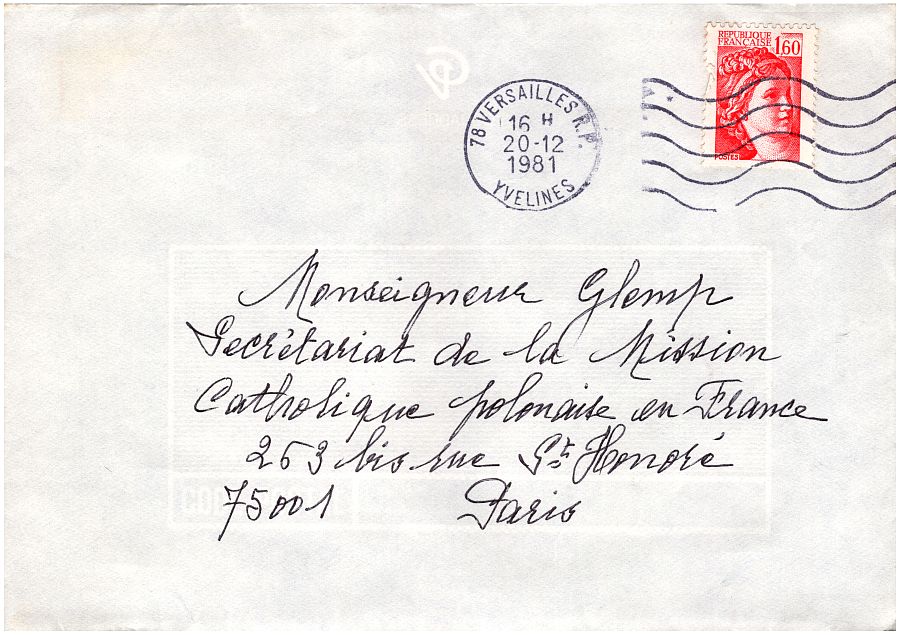 REPUBLIQUE
FRANCAISE
1,60
POSTES
78 VERSAILLES R.P.
16 H
20-12
1981
YVELINES
Monseigneur Glemp
Secrétariat de la Mission
Catholique polonaise en France
263 bis rue St Honoré
75001 Paris